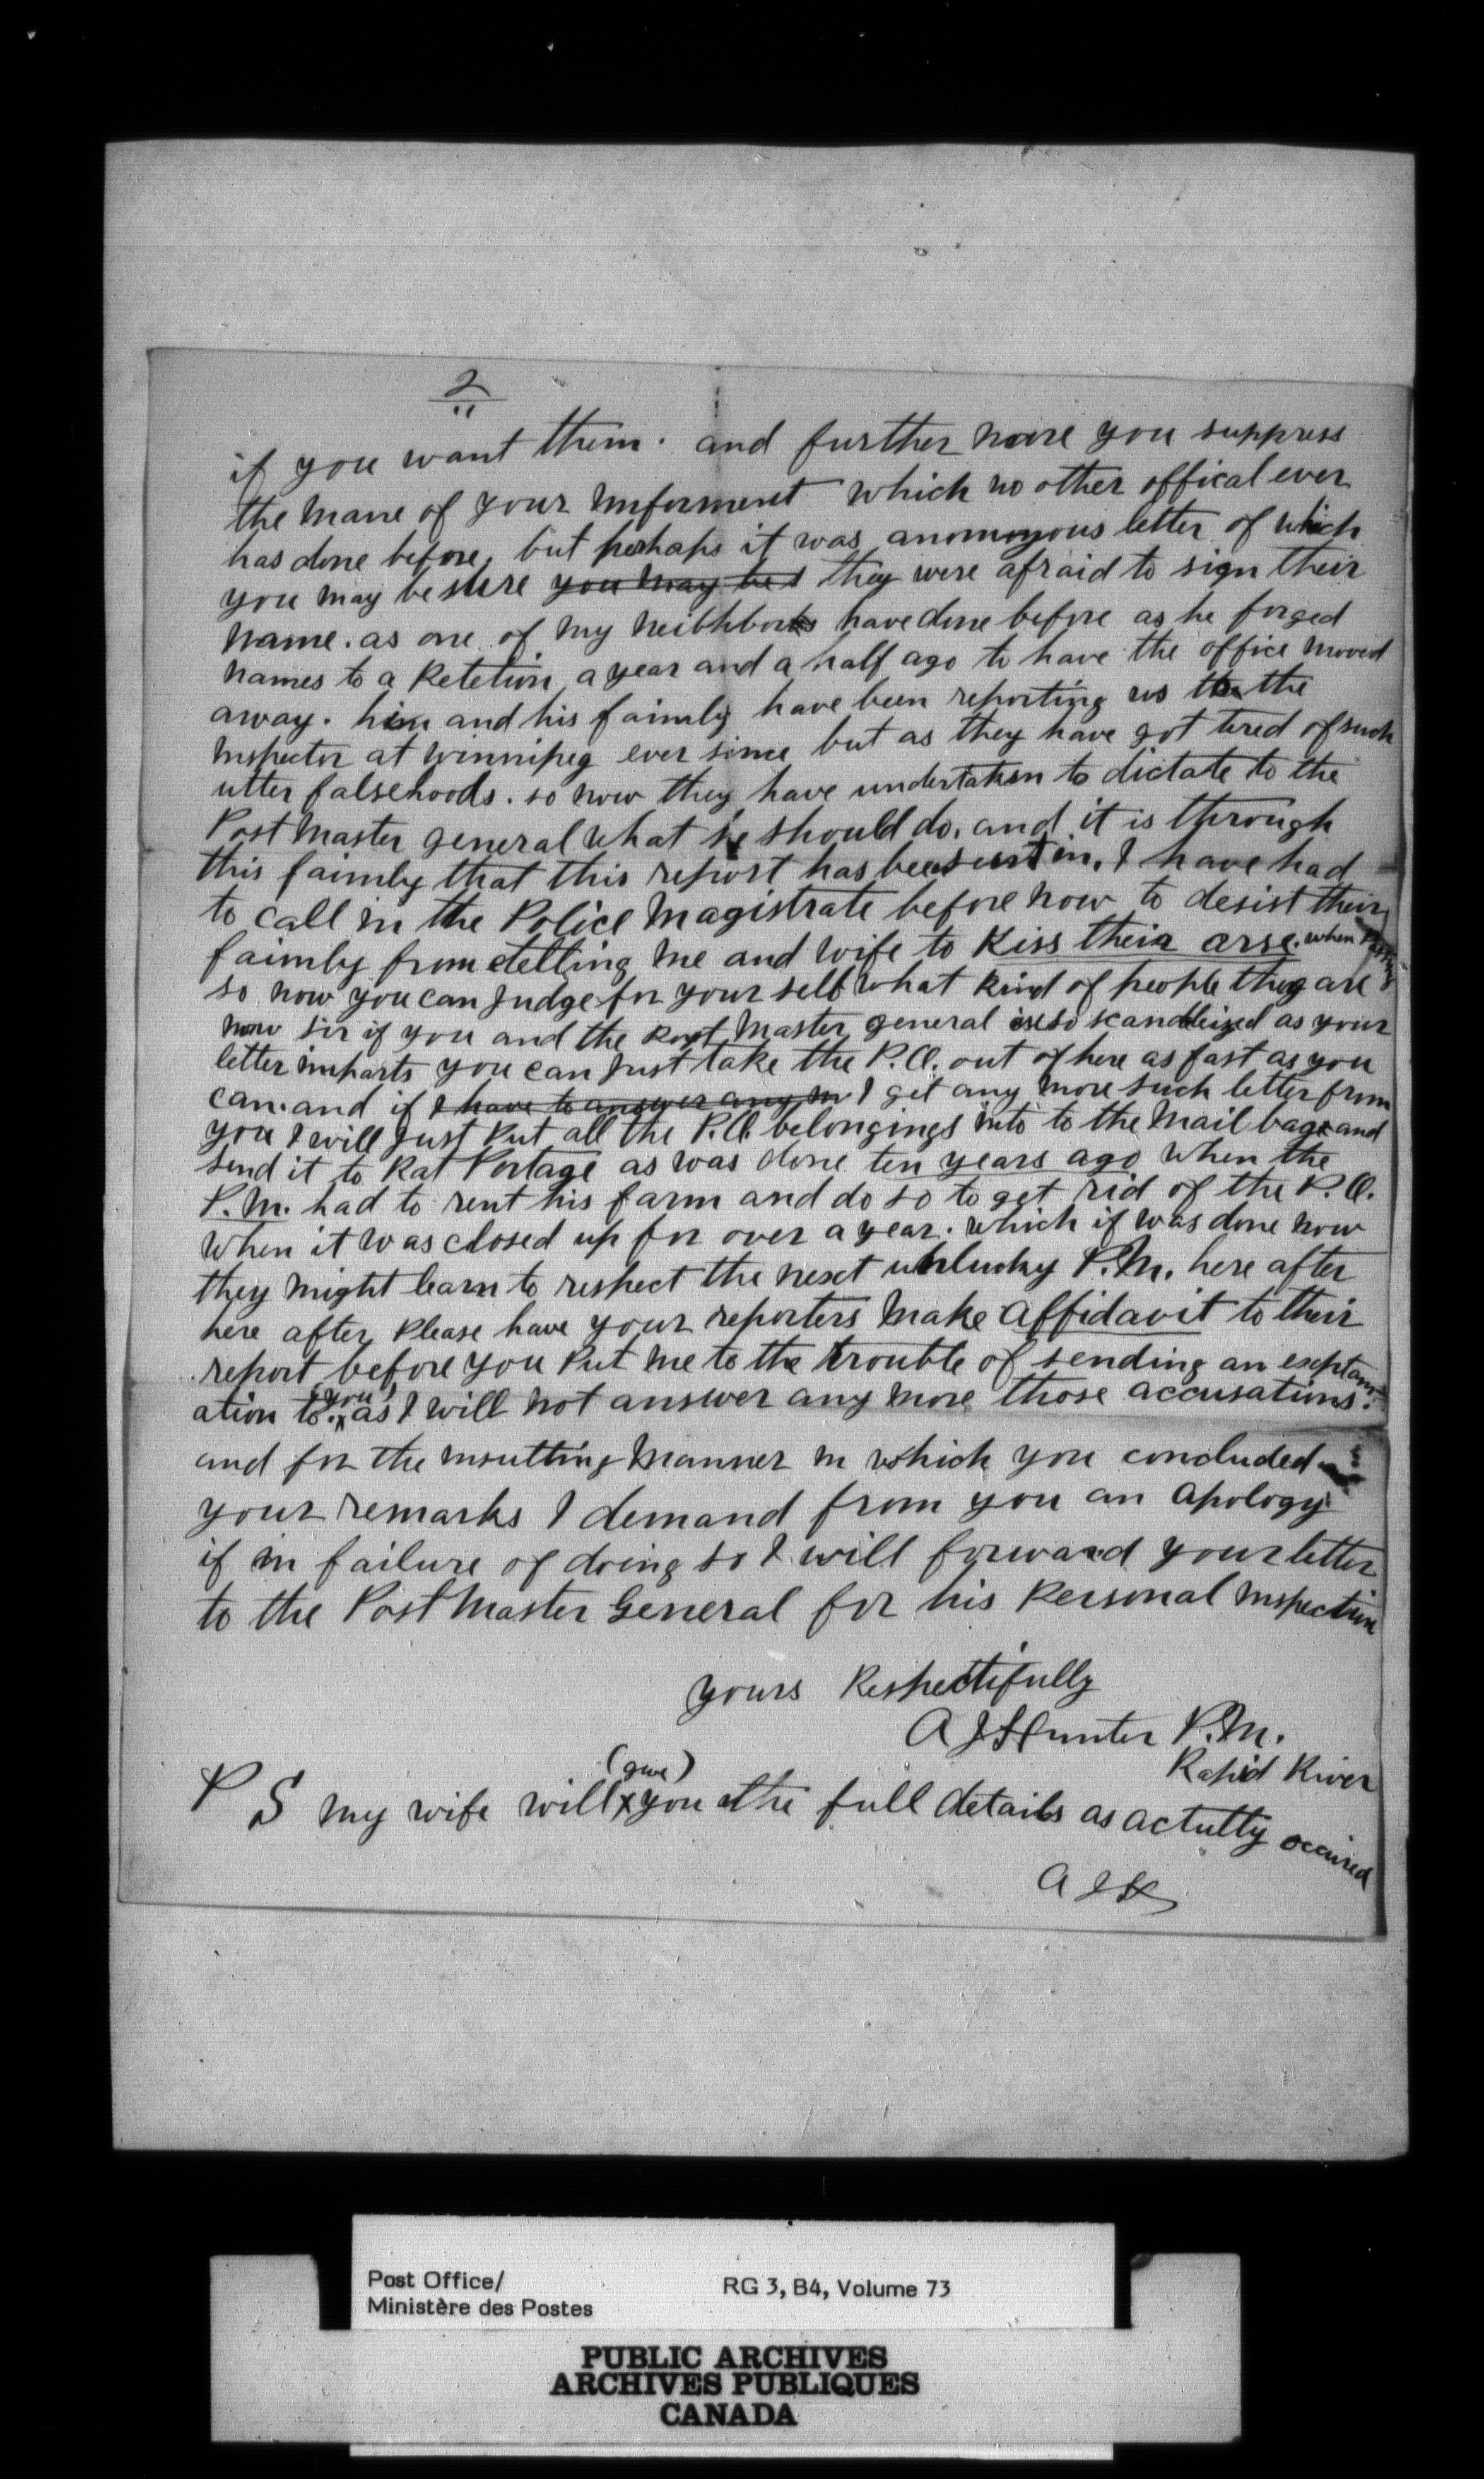 2
"
if you want them. and further more you suppress
the mane of your imforment which no other offical ever
has done before, but perhaps it was anomoyous letter of which
you may be sure you may be s they were afraid to sign their
name. as one of my neibhbors have done before as he forged
names to a Petetion a year and a half ago to have the office moved
away. him and his faimly have been reporting us to the
inspector at winnipeg ever since but as they have got tired of such
utter falsehoods. so now they have undertaken to dictate to the
Post Master general what he should do. and it is through
this faimly that this report has been sent in. I have had
to call in the Police Magistrate before now to desist their
faimly from telling me and wife to Kiss their arse. when passing
so now you can Judge for your self what kind of people they are
now sir if you and the Post Master general is so scandleized as your
letter imparts you can Just take the P.O. out of here as fast as you
can. and if I have to answer any m I get any more such letter from
you I will Just Put all the P.O. belongings into to the Mail bags and
send it to Rat Portage as was done ten years ago when the
P.M. had to rent his farm and do so to get rid of the P.O.
when it was closed up for over a year. which if was done now
they might learn to respect the next unlucky P.M. here after
here after Please have your reporters make affidavit to their
report before you Put me to the trouble of sending an explan
ation to (you) as I will not answer any more those accusations.
and for the insulting Manner in which you concluded
your remarks I demand from you an apology
if in failure of doing so I will forward your letter
to the Post Master General for his Personal inspection
yours Respectifully
A J Hunter P.M.
Rapid River
P S my wife will (give) you the full details as actully occured
A J H
Post Office/
Ministère des Postes
RG 3, B4, Volume 73
PUBLIC ARCHIVES
ARCHIVES PUBLIQUES
CANADA